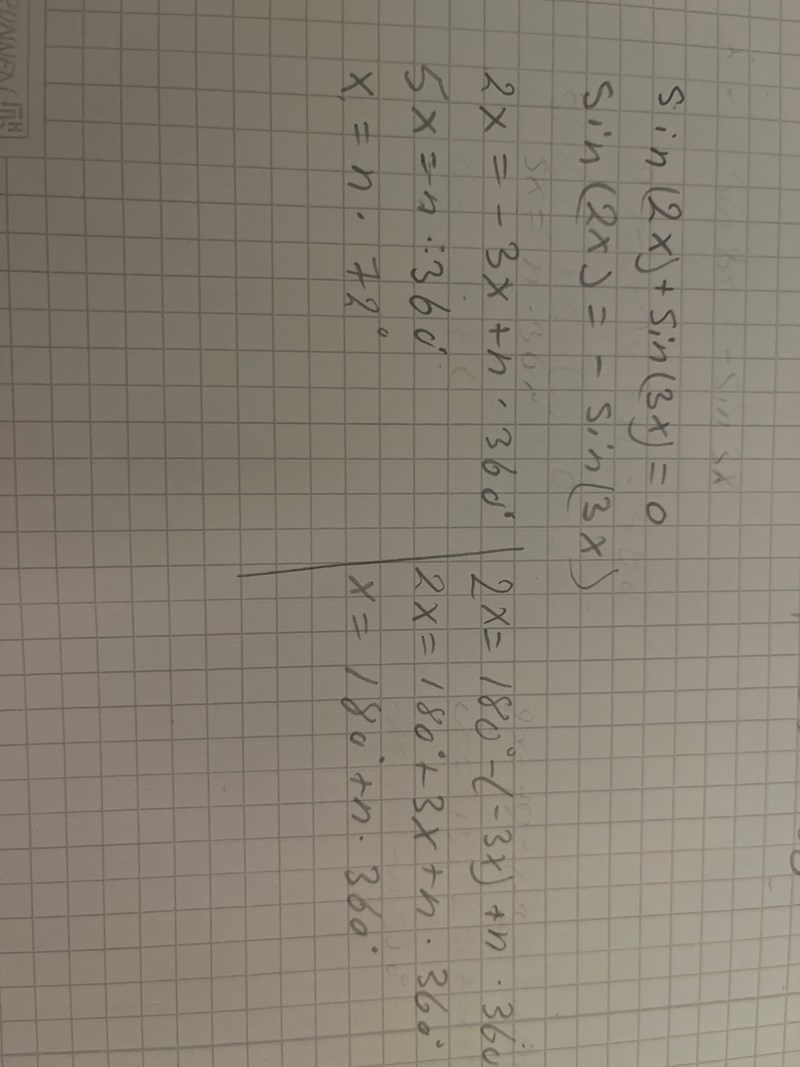 sin(2x)+sin(3x)=0
sin(2x) = - sin(3x)
2x = -3x + n · 360°
5x = n · 360°
x = n · 72°
2x = 180° - (-3x) + n · 360
2x = 180° + 3x + n · 360°
x = 180° + n · 360°